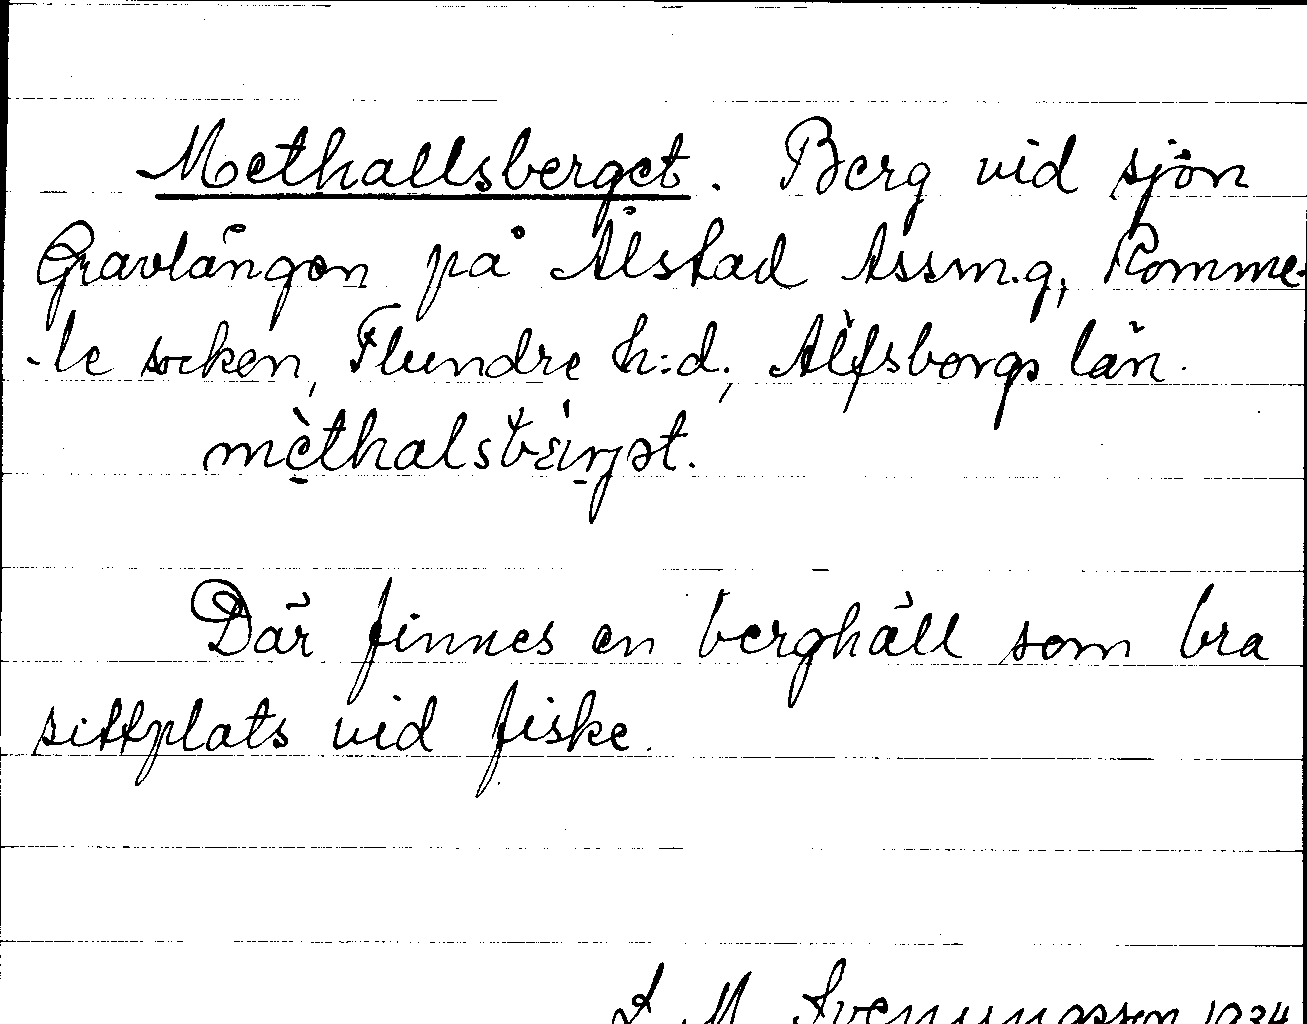 Methallsberget. Berg vid sjön
Gravlången på Ålstad Assm.g, Romme-
-le socken, Flundre h:d., Älfsborgs län.
mèthalsbärjət.
Där finnes en berghäll som bra
sittplats vid fiske.
Svenungsson 1934